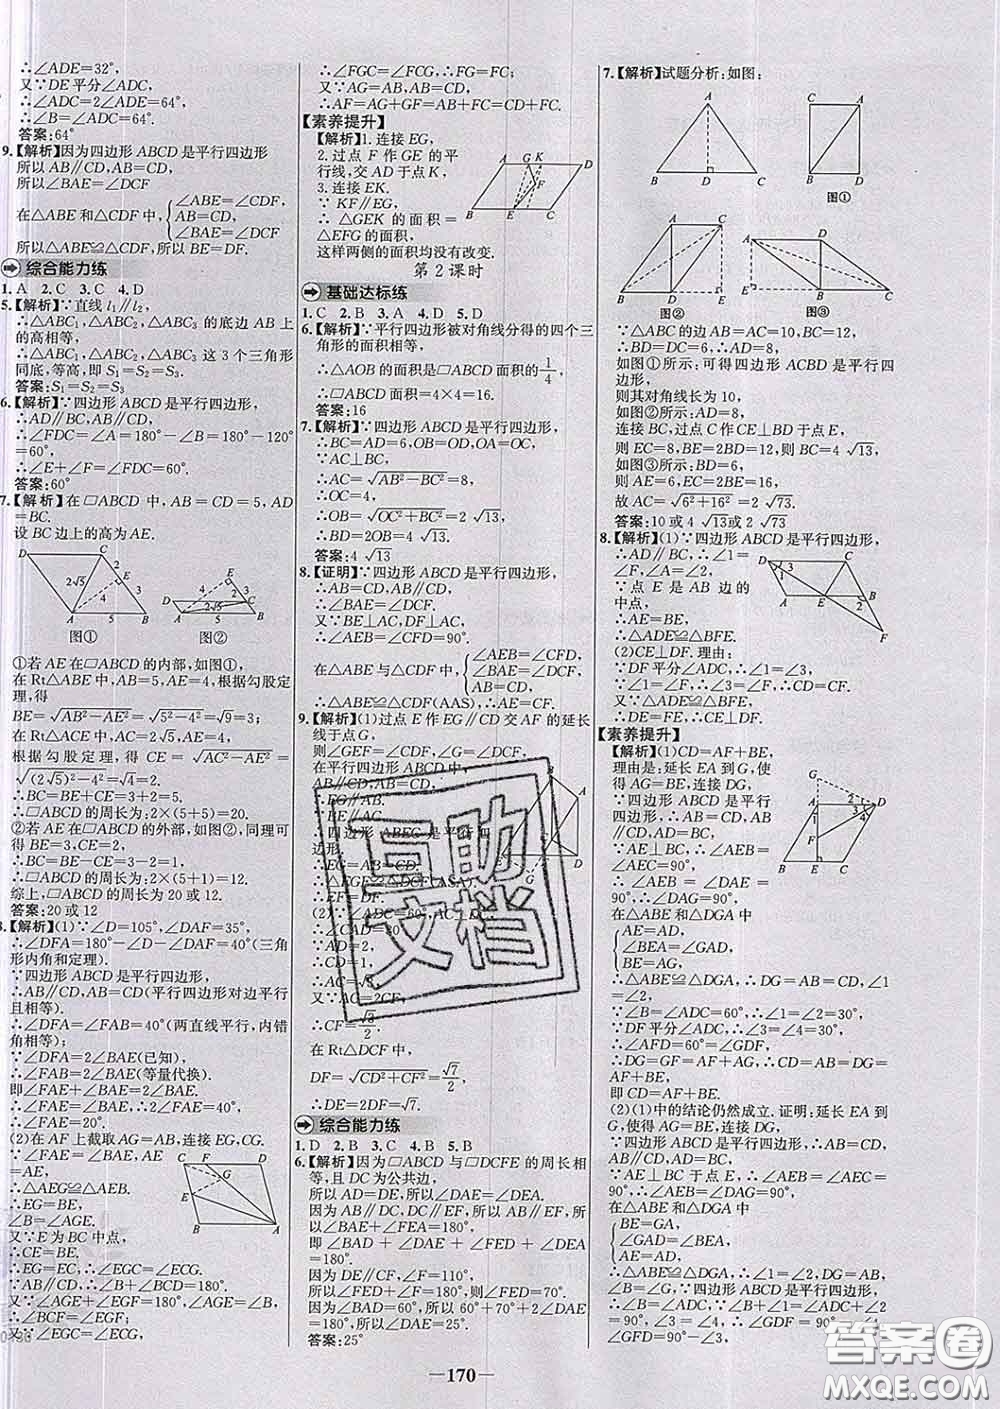 ∴∠ADE=32°,
又∵DE平分∠ADC,
∴∠ADC=2∠ADE=64°
∴∠B=∠ADC=64°.
答案:64°
9.【解析】因为四边形ABCD是平行四边形
所以AB∥CD,AB=CD,
所以∠BAE=∠DCF
在△ABE和△CDF中,{∠ABE=∠CDF,
AB=CD,
∠BAE=∠DCF
所以△ABE≌△CDF,所以BE=DF.
综合能力练
1.A 2.C 3.C 4.D
5.【解析】∵直线l₁∥l₂,
∴△ABC₁,△ABC₂,△ABC₃的底边AB上
的高相等,
∴△ABC₁,△ABC₂,△ABC₃这3个三角形
同底,等高,即S₁=S₂=S₃.
答案:S₁=S₂=S₃
6.【解析】∵四边形ABCD是平行四边形,
∴AD∥BC,AB∥CD,
∴∠FDC=∠A=180°-∠B=180°-120°
=60°,
∴∠E+∠F=∠FDC=60°.
答案:60°
7.【解析】在▱ABCD中,AB=CD=5,AD
=BC.
设BC边上的高为AE.
D C E B A 2√5 4 3 5 图①
E D C A B 2√5 4 3 5 图②
①若AE在▱ABCD的内部,如图①,
在Rt△ABE中,AB=5,AE=4,根据勾股定
理,得
BE=√(AB²-AE²)=√(5²-4²)=√9=3;
在Rt△ACE中,AC=2√5,AE=4,
根据勾股定理,得CE=√(AC²-AE²)=
√((2√5)²-4²)=√4=2,
∴BC=BE+CE=3+2=5,
∴▱ABCD的周长为:2×(5+5)=20.
②若AE在▱ABCD的外部,如图②,同理可
得BE=3,CE=2,
∴BC=BE-CE=3-2=1,
∴▱ABCD的周长为:2×(5+1)=12.
综上,▱ABCD的周长为20或12
答案:20或12
【解析】(1)∵∠D=105°,∠DAF=35°,
∴∠DFA=180°-∠D-∠DAF=40°(三角
形内角和定理).
∵四边形ABCD是平行四边形,
∴AB∥CD,AB=CD(平行四边形对边平行
且相等).
∴∠DFA=∠FAB=40°(两直线平行,内错
角相等);
∵∠DFA=2∠BAE(已知),
∴∠FAB=2∠BAE(等量代换).
即∠FAE+∠BAE=2∠BAE.
∴∠FAE=∠BAE,∴2∠FAE=40°,
∴∠FAE=20°.
(2)在AF上截取AG=AB,连接EG,CG.
∵∠FAE=∠BAE,AE
=AE,
∴△AEG≌△AEB.
∴EG=BE,
∠B=∠AGE.
又∵E为BC中点,
∴CE=BE.
∴EG=EC,∴∠EGC=∠ECG.
∵AB∥CD,∴∠B+∠BCD=180°.
又∵∠AGE+∠EGF=180°,∠AGE=∠B,
∴∠BCF=∠EGF.
又∵∠EGC=∠ECG,
C F D G E B A
∴∠FGC=∠FCG,∴FG=FC;
又∵AG=AB,AB=CD,
∴AF=AG+GF=AB+FC=CD+FC.
【素养提升】
【解析】1.连接EG,
2.过点F作GE的平
行线,交AD于点K,
3.连接EK.
∵KF∥EG,
∴△GEK的面积=
△EFG的面积,
这样两侧的面积均没有改变.
A G K D F B E C
第2课时
基础达标练
1.C 2.B 3.A 4.D 5.D
6.【解析】∵平行四边形被对角线分得的四个三
角形的面积相等,
∴△AOB的面积是▱ABCD面积的1/4,
∴▱ABCD面积=4×4=16.
答案:16
7.【解析】∵四边形ABCD是平行四边形,
∴BC=AD=6,OB=OD,OA=OC,
∵AC⊥BC,
∴AC=√(AB²-BC²)=8,
∴OC=4,
∴OB=√(OC²+BC²)=2√13,
∴BD=2OB=4√13.
答案:4√13
8.【证明】∵四边形ABCD是平行四边形,
∴AB=CD,AB∥CD.
∴∠BAE=∠DCF.
又∵BE⊥AC,DF⊥AC,
∴∠AEB=∠CFD=90°.
在△ABE与△CDF中,{∠AEB=∠CFD,
∠BAE=∠DCF,
AB=CD,
∴△ABE≌△CDF(AAS),∴AE=CF.
9.【解析】(1)过点E作EG∥CD交AF的延长
线于点G,
则∠GEF=∠CDF,∠G=∠DCF,
在平行四边形ABCD中,
AB∥CD,AB=CD,
∴EG∥AB.
∵BE∥AG,
∴四边形ABEG是平行四
边形.
∴EG=AB=CD.
∴△EGF≌△DCF(ASA).
∴EF=DF.
(2)∵∠ADC=60°,AC⊥DC
∴∠CAD=30°
∴AD=2.
∴AC=√3.
又∵AC=2CF,
∴CF=√3/2.
在Rt△DCF中,
DF=√(CD²+CF²)=√7/2,
∴DE=2DF=√7.
综合能力练
1.D 2.B 3.C 4.B 5.B
6.【解析】因为▱ABCD与▱DCFE的周长相
等,且DC为公共边,
所以AD=DE,所以∠DAE=∠DEA.
因为AB∥DC,DC∥EF,所以AB∥EF,
所以∠BAE+∠FEA=180°,
即∠BAD+∠DAE+∠FED+∠DEA
=180°.
因为DE∥CF,∠F=110°,
所以∠FED+∠F=180°,则∠FED=70°.
因为∠BAD=60°,所以60°+70°+2∠DAE
=180°,所以∠DAE=25°.
答案:25°
7.【解析】试题分析:如图:
A B D C
C A B D 图①
A B D C E 图②
A D E B C 图③
∵△ABC的边AB=AC=10,BC=12,
∴BD=DC=6,∴AD=8,
如图①所示:可得四边形ACBD是平行四
边形,
则其对角线长为10,
如图②所示:AD=8,
连接BC,过点C作CE⊥BD于点E,
则EC=8,BE=2BD=12,则BC=4√13,
如图③所示:BD=6,
AE=6,EC=2BE=16,
故AC=√(6²+16²)=2√73.
答案:10或4√13或2√73
8.【解析】(1)∵四边形ABCD是平行四边形,
∴AD∥BC,∴∠1=
∠F,∠A=∠2.
∵点E是AB边的
中点,
∴AE=BE,
∴△ADE≌△BFE.
(2)CE⊥DF.理由:
∵DF平分∠ADC,∴∠1=∠3.
∵∠1=∠F,∴∠3=∠F,∴CD=CF.
D C A E B F 1 3 2
【素养提升】
【解析】(1)CD=AF+BE,
理由是:延长EA到G,使
得AG=BE,连接DG,
∵四边形ABCD是平行四
边形,
∴AB=CD,AB∥CD,
∵AE⊥BC于点E,
∴∠AEB=∠AEC=90°,
∴∠AEB=∠DAE=
∠DAG=90°,
在△ABE和△DGA中
{AE=AD,
∠BEA=∠GAD,
BE=AG,
∴△ABE≌△DGA,∴DG=AB=CD,
∴∠1=∠2=30°,
∵DF平分∠ADC,∴∠3=∠4=30°,
∴∠AFD=60°=∠GDF,
∴DG=GF=AF+AG,∴CD=AB=DG=
AF+BE,即CD=AF+BE.
(2)(1)中的结论仍然成立.证明:延长EA到
G,使得AG=BE,连接DG,
∵四边形ABCD是平行四边形,∴AB=CD,
∵AE⊥BC于点E,∴∠AEB=∠AEC=90°,
∴∠AEB=∠DAG=90°,
在△ABE和△DGA中
{BE=GA,
∠GAD=∠BEA,
AE=AD,
∴△ABE≌△DGA,∴∠1=∠2,DG=AB,
∠B=∠G,∵四边形ABCD是平行四边形,
G A D F B E C 2 3 4
答案圈
MXQE.COM
互助
文档
—170—